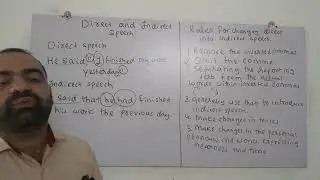 Direct and Indirect
Speech
Direct speech
He said, "I finished my work
yesterday"
Indirect speech
said that he had finished
his work the previous day.
Rules for changing direct
into indirect speech
1. Remove the inverted commas
2. Omit the comma
3. Separating the reporting
verb from the actual
words within inverted commas
3. generally use that to introduce
indirect speech.
4. Make changes in tenses
5. Make changes in the personal
pronouns and words expressing
nearness and time